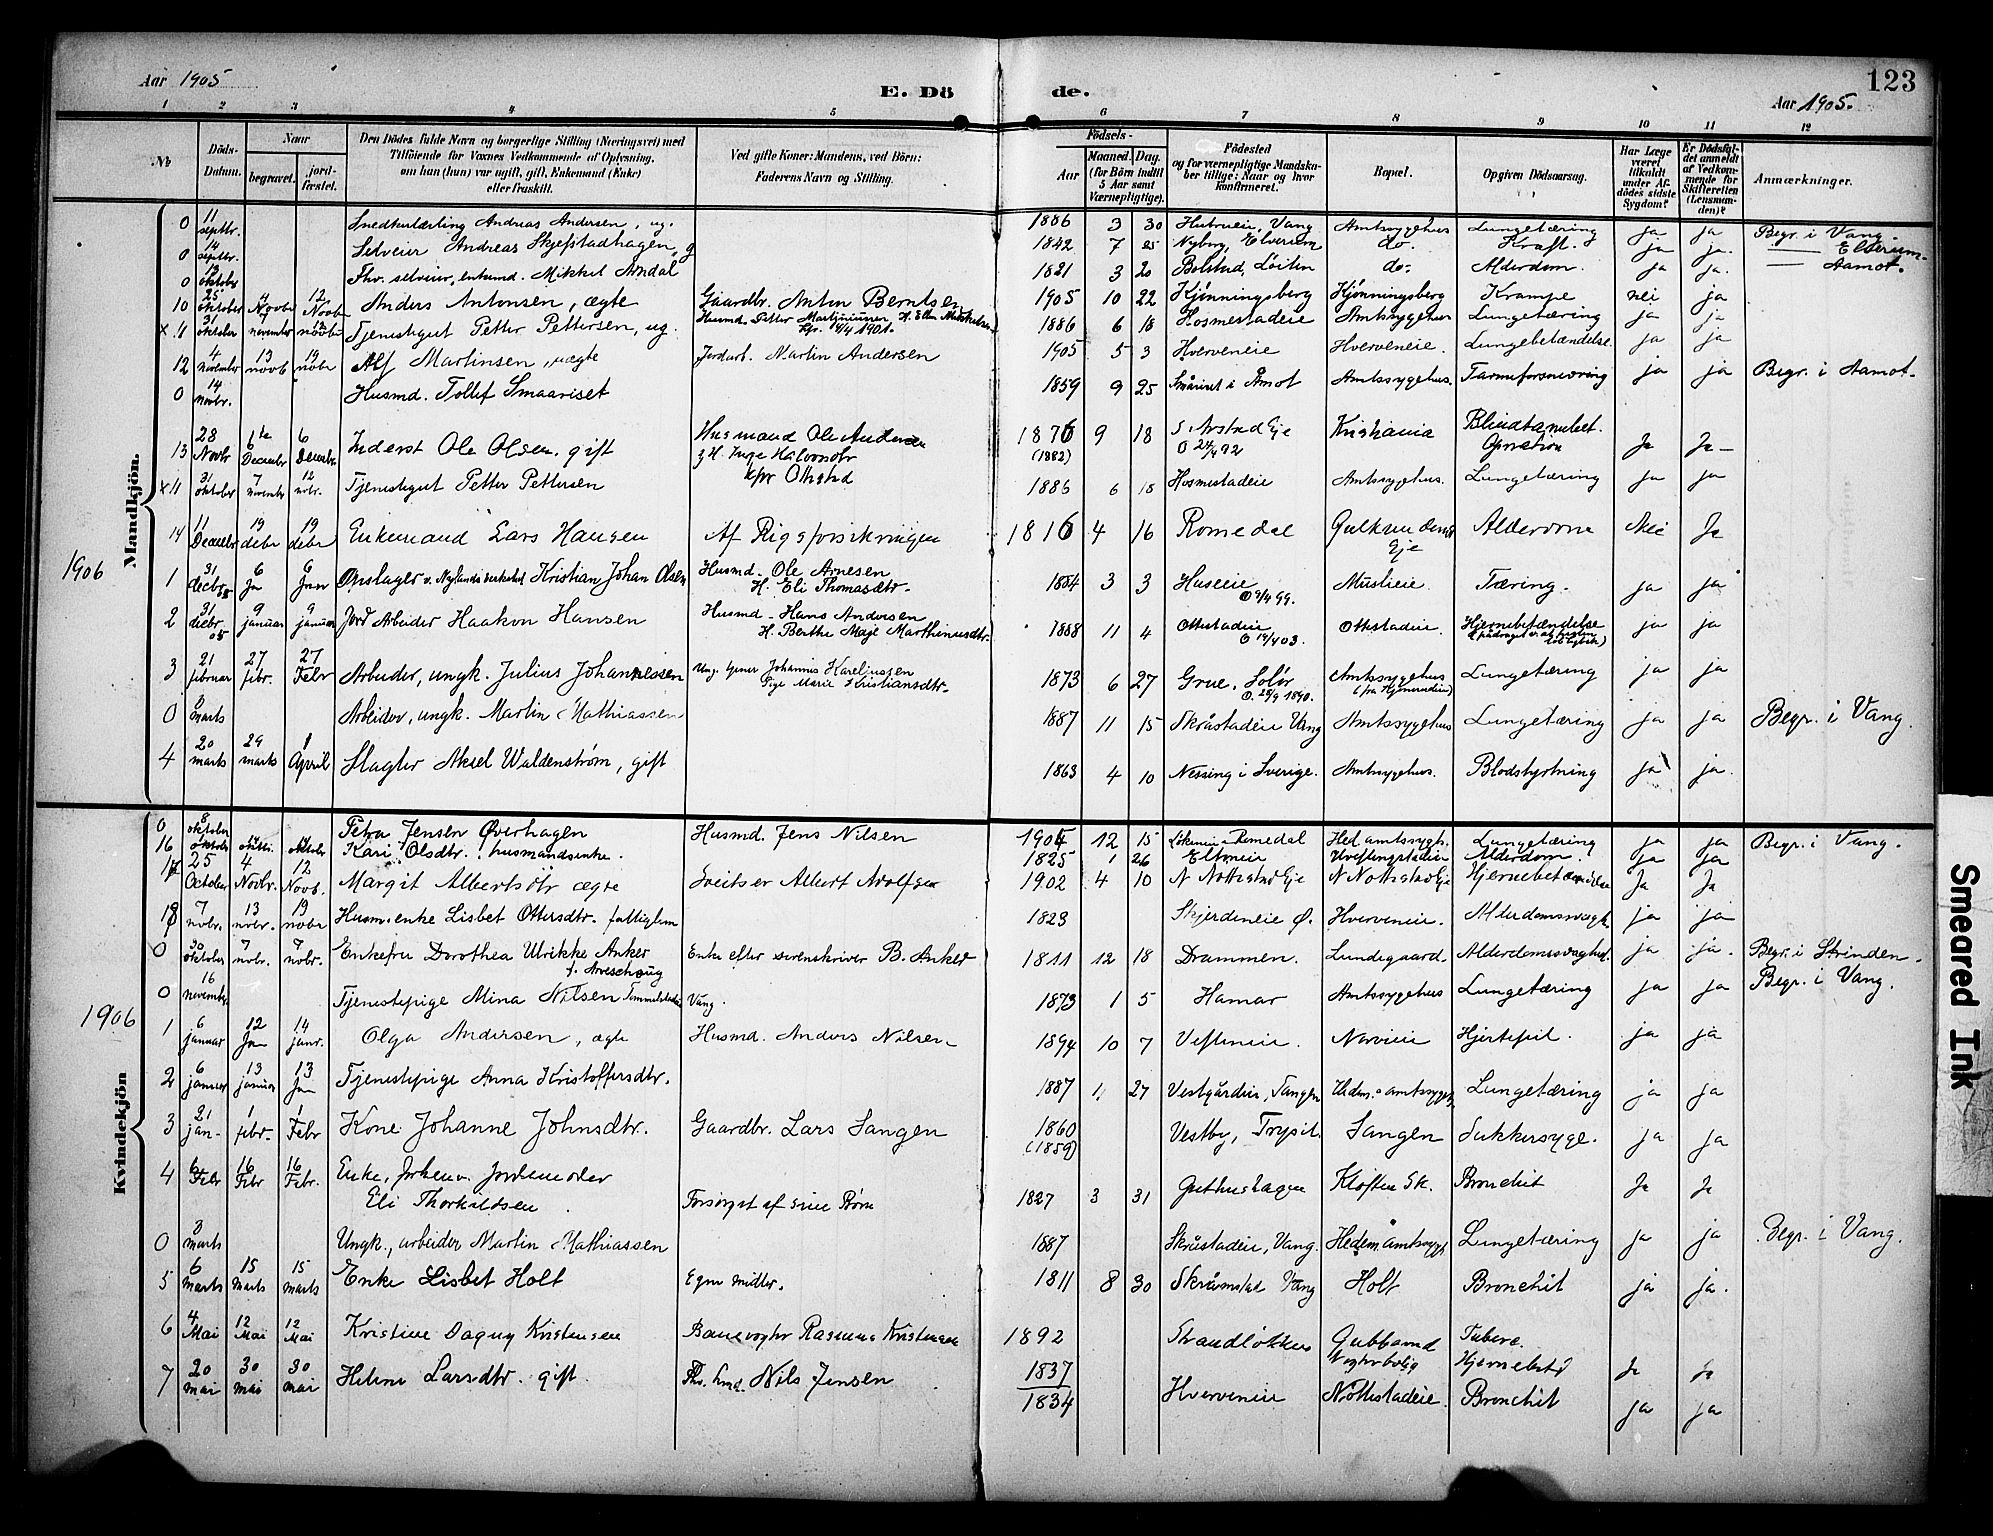 Aar 1905
E. Dö de.
123
Aar 1905.
1 2 3 4 5 6 7 8 9 10 11 12
No
Döds-Datum.
Naar begravet. jordfæstet.
Den Dödes fulde Navn og borgerlige Stilling (Næringsvei) med Tilföiende for Voxnes Vedkommende af Oplysning, om han (hun) var ugift, gift, Enkemand (Enke) eller fraskilt.
Ved gifte Koner: Mandens, ved Börn: Faderens Navn og Stilling.
Födsels- Aar Maaned. Dag. (for Börn indtil 5 Aar samt Værnepligtige).
Födested og for værnepligtige Mandskaber tillige: Naar og hvor konfirmeret.
Bopæl.
Opgiven Dödsaarsag.
Har Læge været tilkaldt under Afdödes sidste Sygdom?
Er Dödsfaldet anmeldt af Vedkommende for Skifteretten (Lensmanden)?
Anmærkninger.
Mandkjön.
0 11 septbr. Snedkerlærling Andreas Andersen, ug. 1886 3 30 Vang Amtssygehus Lungetæring ja ja Begr. i Vang.
0 14 septbr. Selveier Andreas Skjefstadhagen, g 1842 7 25 Nyborg, Elverum do. Kræft. ja ja. — Elverum.
0 12 oktober Fhv. selveier, enkemd. Mikkel Arndal 1821 3 20 Bolstad, Løiten do. Alderdom. ja ja. — Aamot.
10 25 oktober 4 Novbr 12 Novbr Anders Antonsen, ægte Gaardbr. Anton Berntsen 1905 10 22 Kjønningsberg Kjønningsberg Krampe nei ja
x 11 31 oktober 7 november 12 novbr Tjenestegut Petter Pettersen, ug. Husmd. Petter Martiniussen H. Ellen Mikkelsen kfs. 14/4 1901. 1886 6 18 Hosmestadeie Amtssygehus Lungetæring ja ja
12 4 november 13 novb 19 nobr Alf Martinsen, uægte Jordarb. Martin Andersen 1905 5 3 Hverveneie Hverveneie. Lungebetændelse. ja ja
0 14 novbr. Husmd. Tollef Smaariset 1859 9 25 Småriset i Åmot Amtssygehus. Tarmeforsnevring ja ja Begr. i Aamot.
13 28 Novbr 6 December 6 December Inderst Ole Olsen, gift Husmand Ole Andersen H. Inge Halvorsdtr kpr Ottestad 1876 (1882) 9 18 S. Arstad Eje 0 24/4 92 Kristiania Blindtarmbet. Operation Ja Ja
x 11 31 oktober 7 november 12 nobr. Tjenestegut Petter Pettersen 1886 6 18 Hosmestadeie Amtssygehus. Lungetæring ja ja
14 11 Decembr 19 debr 19 debr Enkemand Lars Hansen Af Rigsforsikringen 1816 4 16 Romedal Eje Alderdom Nei Ja
1906
1 31 decbr. 05 6 Ja 6 Janr v. Nylands verksted Kristian Johan Olsen Husmd. Ole Arnesen H. Eli Thomasdtr. 1884 3 3 Huseie 0 9/4 99. Muslieie Tæring. ja ja
2 31 decbr. 05 9 januar 9 januar Jord Arbeider Haakon Hansen Husmd. Hans Andersen H. Berthe Maje Marthinusdtr. 1888 11 4 Ottestadeie 0 19/4 03. Ottestadeie. Hjernebetændelse ja ja
3 21 februar 27 febr. 27 Febr Arbeider, ungk. Julius Johannessen Johannis Karelinssen Pige Marie Kristiansdtr. 1873 6 27 Grue, Solør 0. 28/9 1890. Amtssygehus Lungetæring ja ja
0 8 marts Arbeider, ungk. Martin Mathiassen 1887 11 15 Skråstadeie Vang Amtssygehus Lungetæring ja ja Begr. i Vang.
4 20 marts 29 marts 1 April Slagter Aksel Waldenstrøm, gift 1863 4 10 Nessing i Sverige. Amtssygehus. Blodstyrtning ja ja.
Kvindekjön
0 8 oktober Petra Jensen Øverhagen Husmd. Jens Nilsen 1904 12 15 Romedal Hed. amtssygh. Lungetæring ja ja Begr. i Vang.
16 oktobr oktobr Kari Olsdtr. husmandsenke. 1825 1 26 Eltoneie Alderdom. ja ja
17 25 October 4 Novbr. 12 Novb. Margit Albertsdtr ægte Sveitser Albert Adolfsen 1902 4 10 N Nottestad Eje N Nottestad Eje Hjernebetændelse Ja Ja
18 7 nobr. 13 nobr. 19 nobr Husm. enke Lisbet Ottersdtr. fattiglem 1823 Skjerdeneie Ø. Hverveneie. Alderdomssvagh. ja ja
0 30 oktober 7 nobr. 7 nobr. Enkefru Dorothea Ulrikke Anker f. Areschoug Enke efter sorenskriver B. Anker 1811 12 18 Drammen. Lundegaard. Alderdomssvaghed. ja ja. Begr. i Strinden.
0 16 november Tjenestepige Mina Nilsen Vang. 1873 1 5 Hamar Amtssygehus Lungetæring ja ja Begr. i Vang.
1906
1 6 januar 12 Ja 14 janr. Olga Andersen, ægte Husmd. Anders Nilsen. 1894 10 7 Vesteneie. Narveie Hjertefeil. ja ja
2 6 januar 13 januar 13 Jan Tjenestepige Anna Kristoffersdtr. 1887 1. 27 Vestgårdeie, Tangen Hedem. amtssygeh. Lungetæring ja ja
3 21 jan. 1 febr. 1 Febr Kone Johanne Johnsdtr. Gaardbr. Lars Sangen 1860 (1859) Vestby, Trysil. Sangen Sukkersyge. ja ja
4 6 Febr 16 Febr 16 Febr. Enke, Jordemoder Eli Thorkildsen Forsørget af sine Børn 1827 3 31 Guthushagen Kloften Sk. Bronchit Ja Ja
0 8 marts Ungk., arbeider Martin Mathiassen 1887 Skråstadeie, Vang. Hedem. amtssygh. Lungetæring ja ja Begr. i Vang.
5 6 marts 15 marts 15 marts Enke Lisbet Holt Egne midler. 1811 8 30 Skråmstad Vang Holt Bronchit ja ja.
6 4 Mai 12 Mai 12 Mai Kristine Dagny Kristensen Banevogter Rasmus Kristensen 1892 Strandløkken Gubberud Vogterbolig Tuberc. Hjernebetd Ja Ja
7 20 mai 30 mai 30 mai Helene Larsdtr. gift Fhv. hmd. Nils Jensen 1837 1834 Hverveneie Nottestadeie. Bronchit ja ja
Smeared Ink